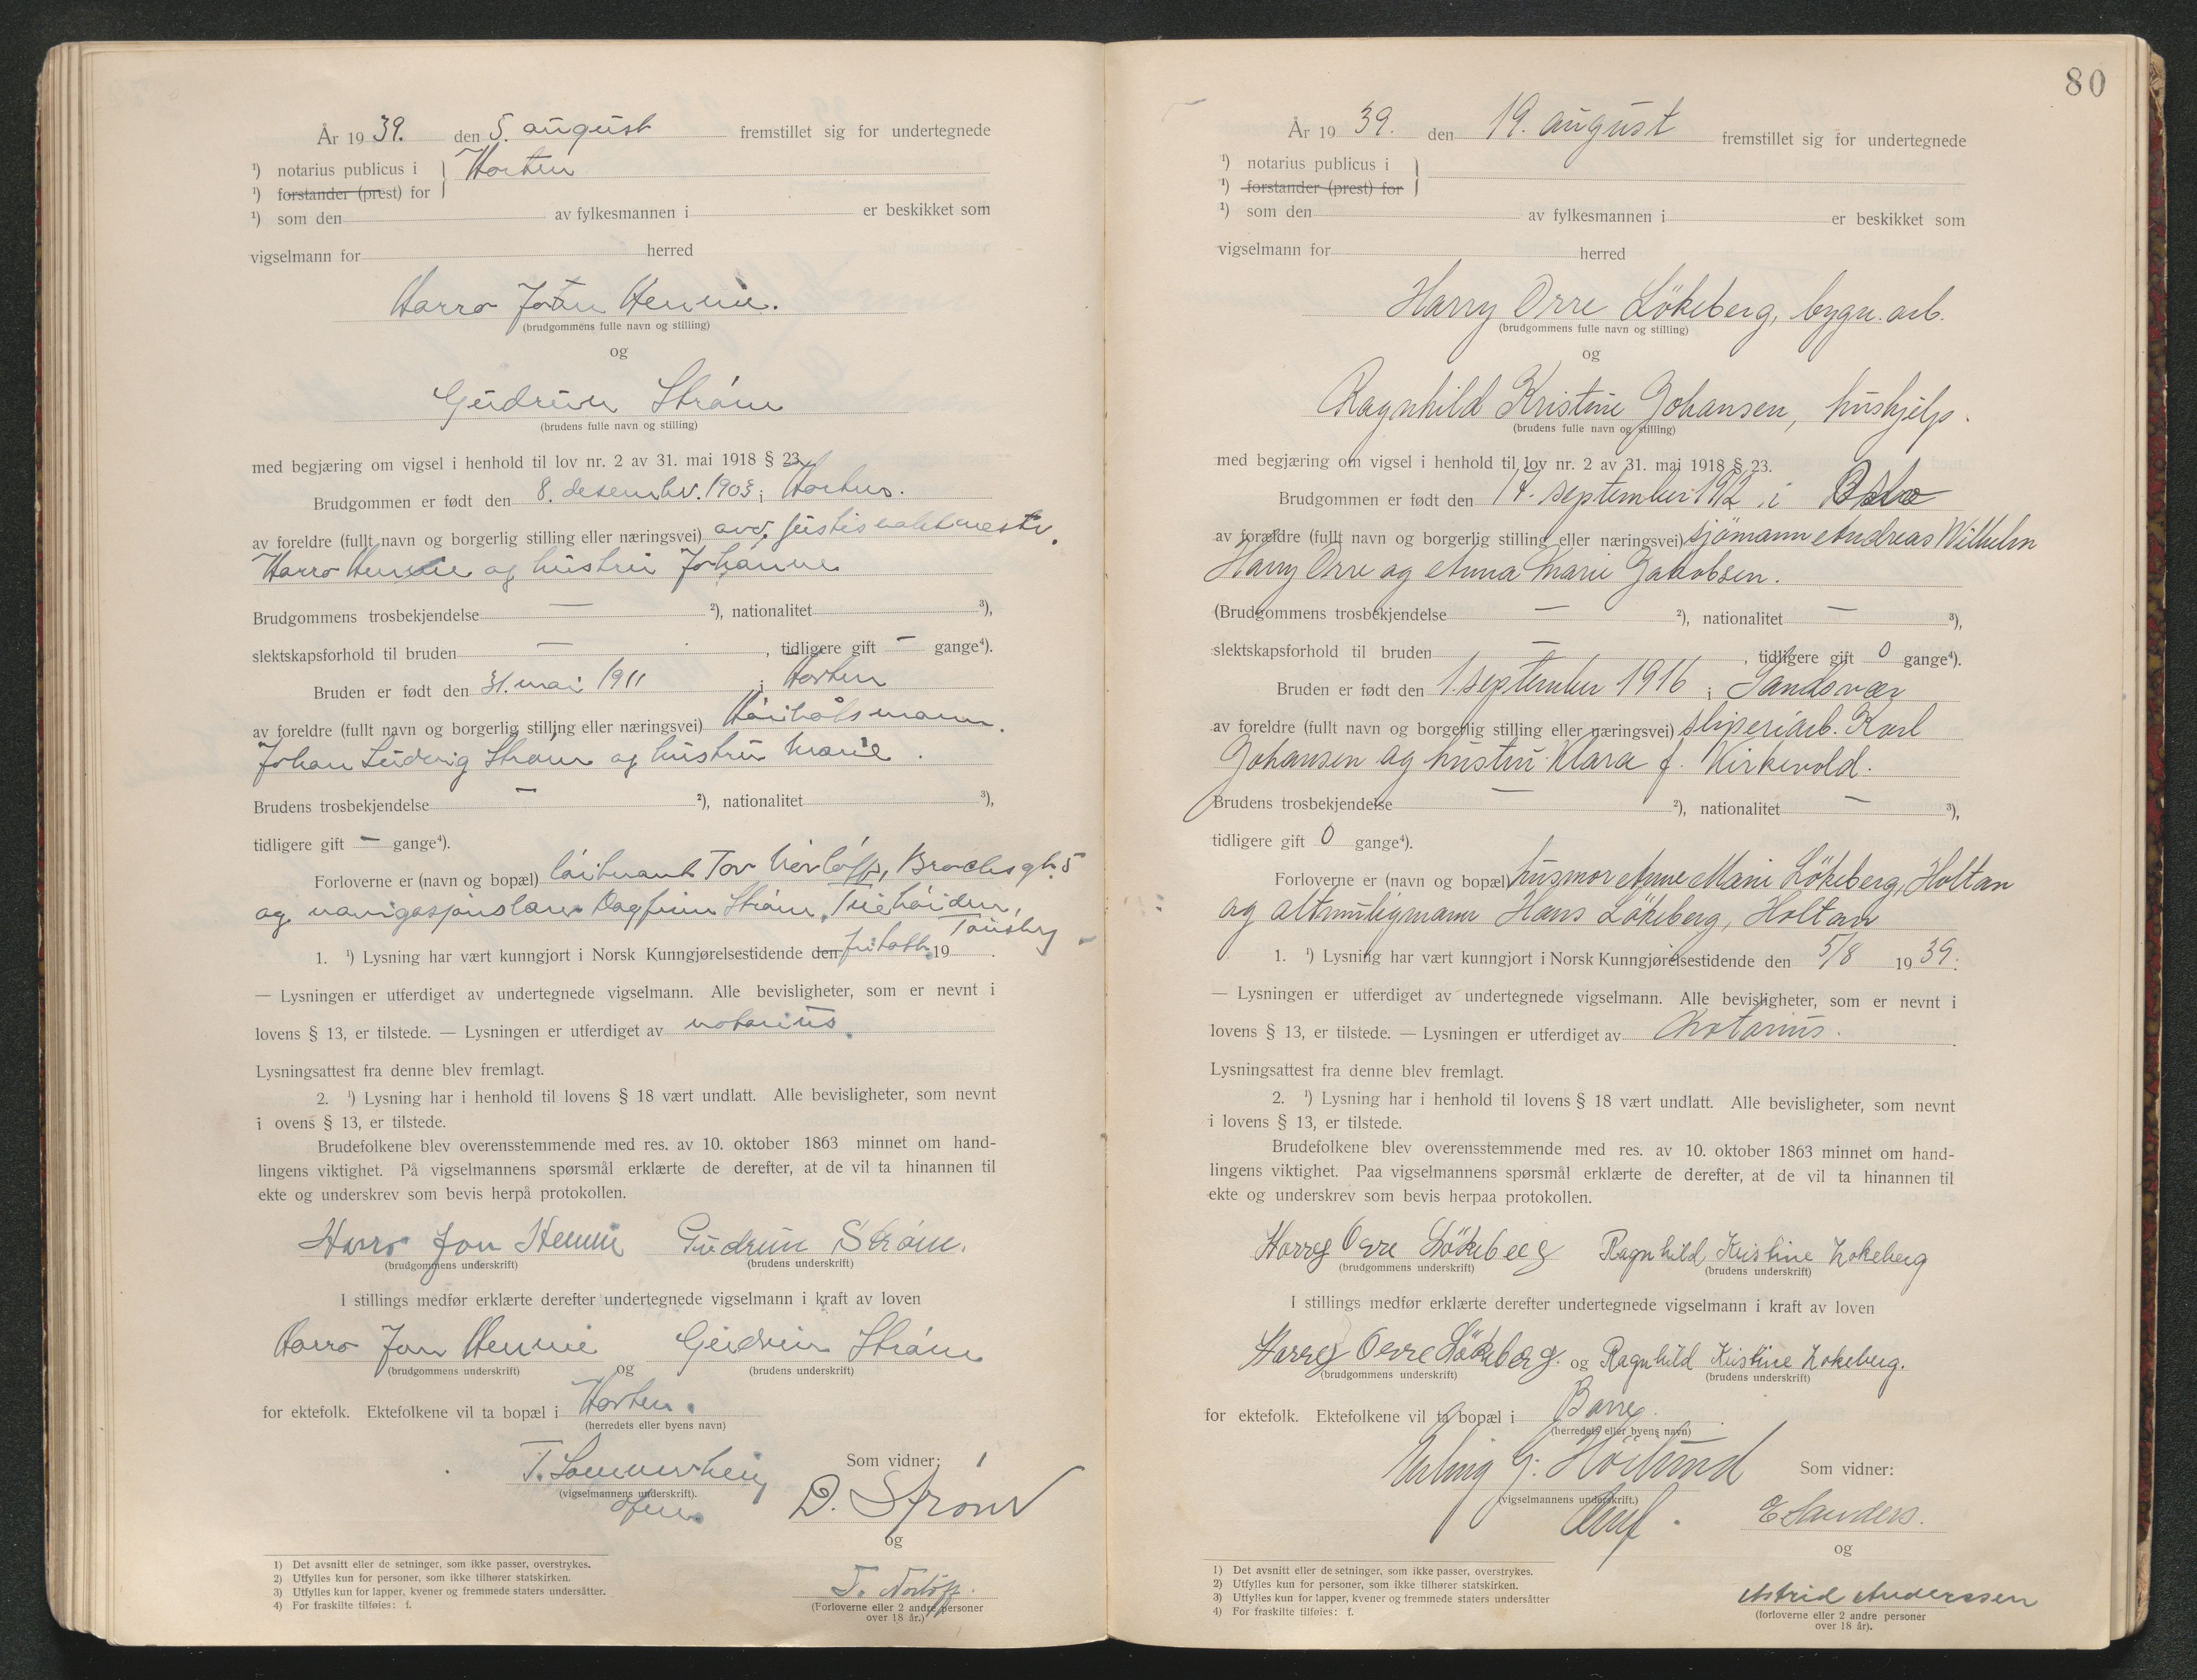 År 1939. den 5. august fremstillet sig for undertegnede
¹) notarius publicus i } Horten
¹) forstander (prest) for
¹) som den av fylkesmannen i er beskikket som
vigselmann for herred
Harro Jon Hennie.
(brudgommens fulle navn og stilling)
og
Gudrun Strøm
(brudens fulle navn og stilling)
med begjæring om vigsel i henhold til lov nr. 2 av 31. mai 1918 § 23.
Brudgommen er født den 8. desember 1903 i Horten.
av foreldre (fullt navn og borgerlig stilling eller næringsvei) avd. justisvaktmester
Harro Hennie og hustru Johanne
Brudgommens trosbekjendelse — ²), nationalitet ³),
slektskapsforhold til bruden — , tidligere gift — gange⁴).
Bruden er født den 31. mai 1911 i Horten
av foreldre (fullt navn og borgerlig stilling eller næringsvei)
Johan Ludvig Strøm og hustru Marie.
Brudens trosbekjendelse — ²), nationalitet ³),
tidligere gift — gange⁴).
Forloverne er (navn og bopæl) løitnant Tor
og navigasjonslærer Dagfinn Strøm,
Tønsberg
1. ¹) Lysning har vært kunngjort i Norsk Kunngjørelsestidende den 19 .
— Lysningen er utferdiget av undertegnede vigselmann. Alle bevisligheter, som er nevnt i
lovens § 13, er tilstede. — Lysningen er utferdiget av notarius.
Lysningsattest fra denne blev fremlagt.
2. ¹) Lysning har i henhold til lovens § 18 vært undlatt. Alle bevisligheter, som nevnt
i ovens § 13, er tilstede.
Brudefolkene blev overensstemmende med res. av 10. oktober 1863 minnet om hand-
lingens viktighet. På vigselmannens spørsmål erklærte de derefter, at de vil ta hinannen til
ekte og underskrev som bevis herpå protokollen.
Harro Jon Hennie Gudrun Strøm.
(brudgommens underskrift) (brudens underskrift)
I stillings medfør erklærte derefter undertegnede vigselmann i kraft av loven
Harro Jon Hennie og Gudrun Strøm
(brudgommens underskrift) (brudens underskrift)
for ektefolk. Ektefolkene vil ta bopæl i Horten.
(herredets eller byens navn)
Som vidner:
(vigselmannens underskrift).
D. Strøm
og
(Forloverne eller 2 andre personer
over 18 år.)
1) Det avsnitt eller de setninger, som ikke passer, overstrykes.
2) Utfylles kun for personer, som ikke tilhører statskirken.
3) Utfylles kun for lapper, kvener og fremmede staters undersåtter.
4) For fraskilte tilføies: f.
80
År 1939. den 19. august fremstillet sig for undertegnede
¹) notarius publicus i }
¹) forstander (prest) for
¹) som den av fylkesmannen i er beskikket som
vigselmann for herred
Harry Orre Løkeberg, bygn. arb.
(brudgommens fulle navn og stilling)
og
Ragnhild Kristine Johansen, hushjelp.
(brudens fulle navn og stilling)
med begjæring om vigsel i henhold til lov nr. 2 av 31. mai 1918 § 23.
Brudgommen er født den 17. september 1912 i Oslo
av forældre (fullt navn og borgerlig stilling eller næringsvei) sjømann Andreas Wilhelm
Harry Orre og Anna Marie Jakobsen.
(Brudgommens trosbekjendelse — ²), nationalitet — ³),
slektskapsforhold til bruden — , tidligere gift 0 gange⁴).
Bruden er født den 1. september 1916 i Sandsvær
av foreldre (fullt navn og borgerlig stilling eller næringsvei) sliperiarb. Karl
Johansen og hustru Klara f. Kirkevold.
Brudens trosbekjendelse — ²), nationalitet — ³),
tidligere gift 0 gange⁴).
Forloverne er (navn og bopæl) husmor Anne Marie Løkeberg, Holtan
og altmuligmann Hans Løkeberg, Holtan
1. ¹) Lysning har vært kunngjort i Norsk Kunngjørelsestidende den 5/8 1939.
— Lysningen er utferdiget av undertegnede vigselmann. Alle bevisligheter, som er nevnt i
lovens § 13, er tilstede. — Lysningen er utferdiget av Notarius.
Lysningsattest fra denne blev fremlagt.
2. ¹) Lysning har i henhold til lovens § 18 vært undlatt. Alle bevisligheter, som nevnt
i lovens § 13, er tilstede.
Brudefolkene blev overensstemmende med res. av 10. oktober 1863 minnet om hand-
lingens viktighet. Paa vigselmannens spørsmål erklærte de derefter, at de vil ta hinannen til
ekte og underskrev som bevis herpaa protokollen.
Harry Orre Løkeberg Ragnhild Kristine Løkeberg
(brudgommens underskrift) (brudens underskrift)
I stillings medfør erklærte derefter undertegnede vigselmann i kraft av loven
Harry Orre Løkeberg. og Ragnhild Kristine Løkeberg.
(brudgommens underskrift) (brudens underskrift)
for ektefolk. Ektefolkene vil ta bopæl i Borre.
(herredets eller byens navn)
Erling G. Høilund Som vidner:
(vigselmannens underskrift.)
E Sanders.
og
Astrid Anderssen
(forloverne eller 2 andre personer
over 18 år).
1) Det avsnitt eller de setninger, som ikke passer, overstrykes.
2) Utfylles kun for personer, som ikke tilhører statskirken.
3) Utfylles kun for lapper, kvener og fremmede staters undersåtter
4) For fraskilte tilføies: f.